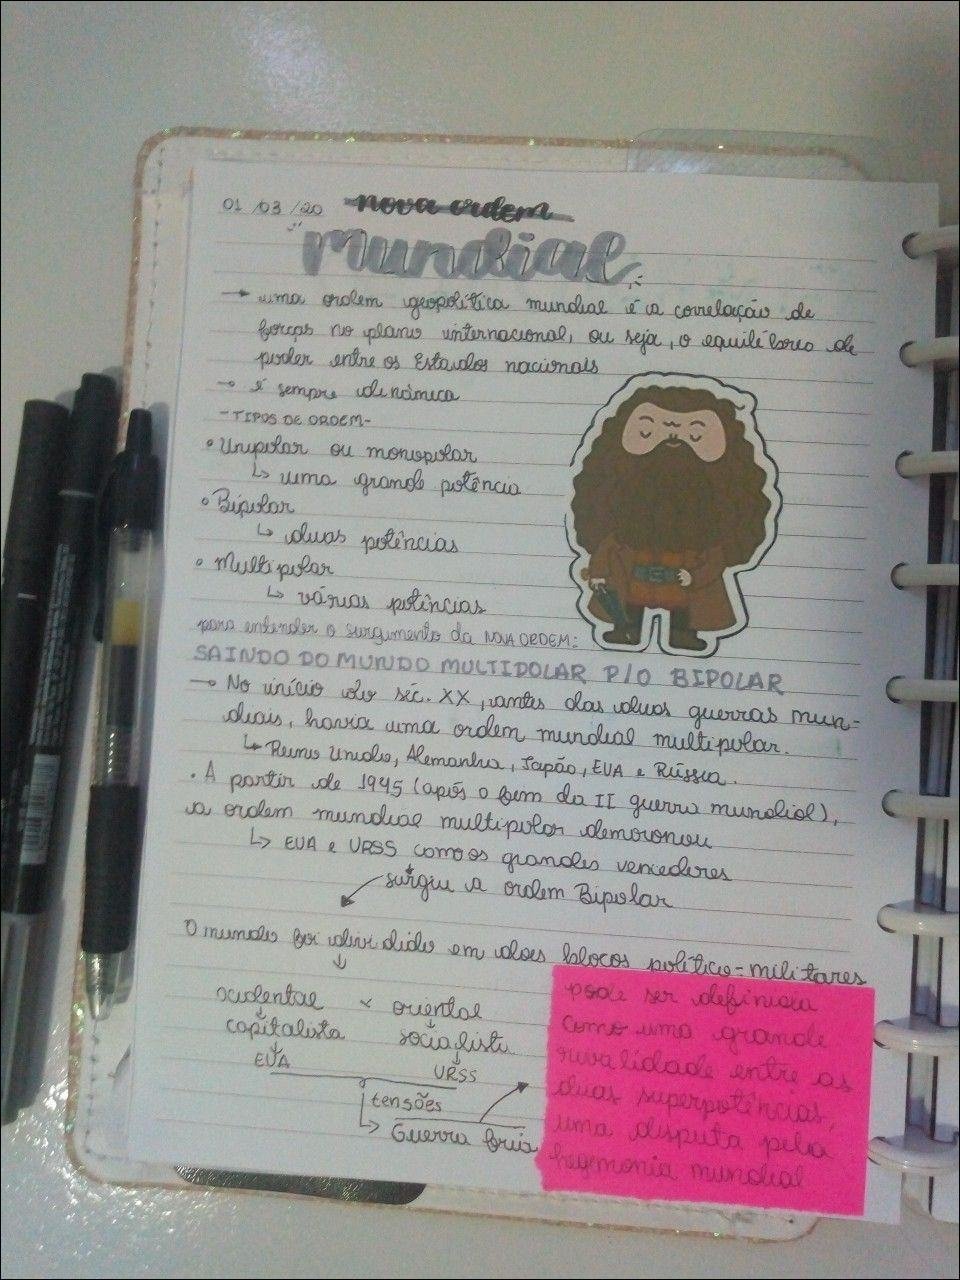 01/03/20 nova ordem
mundial
→ uma ordem geopolítica mundial é a correlação de
forças no plano internacional, ou seja, o equilíbrio de
poder entre os Estados nacionais
→ é sempre dinâmica
-TIPOS DE ORDEM-
• Unipolar ou monopolar
↳ uma grande potência
• Bipolar
↳ duas potências
• Multipolar
↳ várias potências
para entender o surgimento da NOVA ORDEM:
SAINDO DO MUNDO MULTIPOLAR P/O BIPOLAR
→ No início do séc. XX, antes das duas guerras mun-
diais, havia uma ordem mundial multipolar.
↳ Reino Unido, Alemanha, Japão, EUA e Rússia.
• A partir de 1945 (após o fim da II guerra mundial),
a ordem mundial multipolar desmoronou
↳ EUA e URSS como os grandes vencedores
surgiu a ordem Bipolar
O mundo foi dividido em dois blocos político-militares
ocidental × oriental
capitalista socialista
EUA URSS
tensões
↳ Guerra fria
pode ser definida
como uma grande
rivalidade entre as
duas superpotências,
uma disputa pela
hegemonia mundial